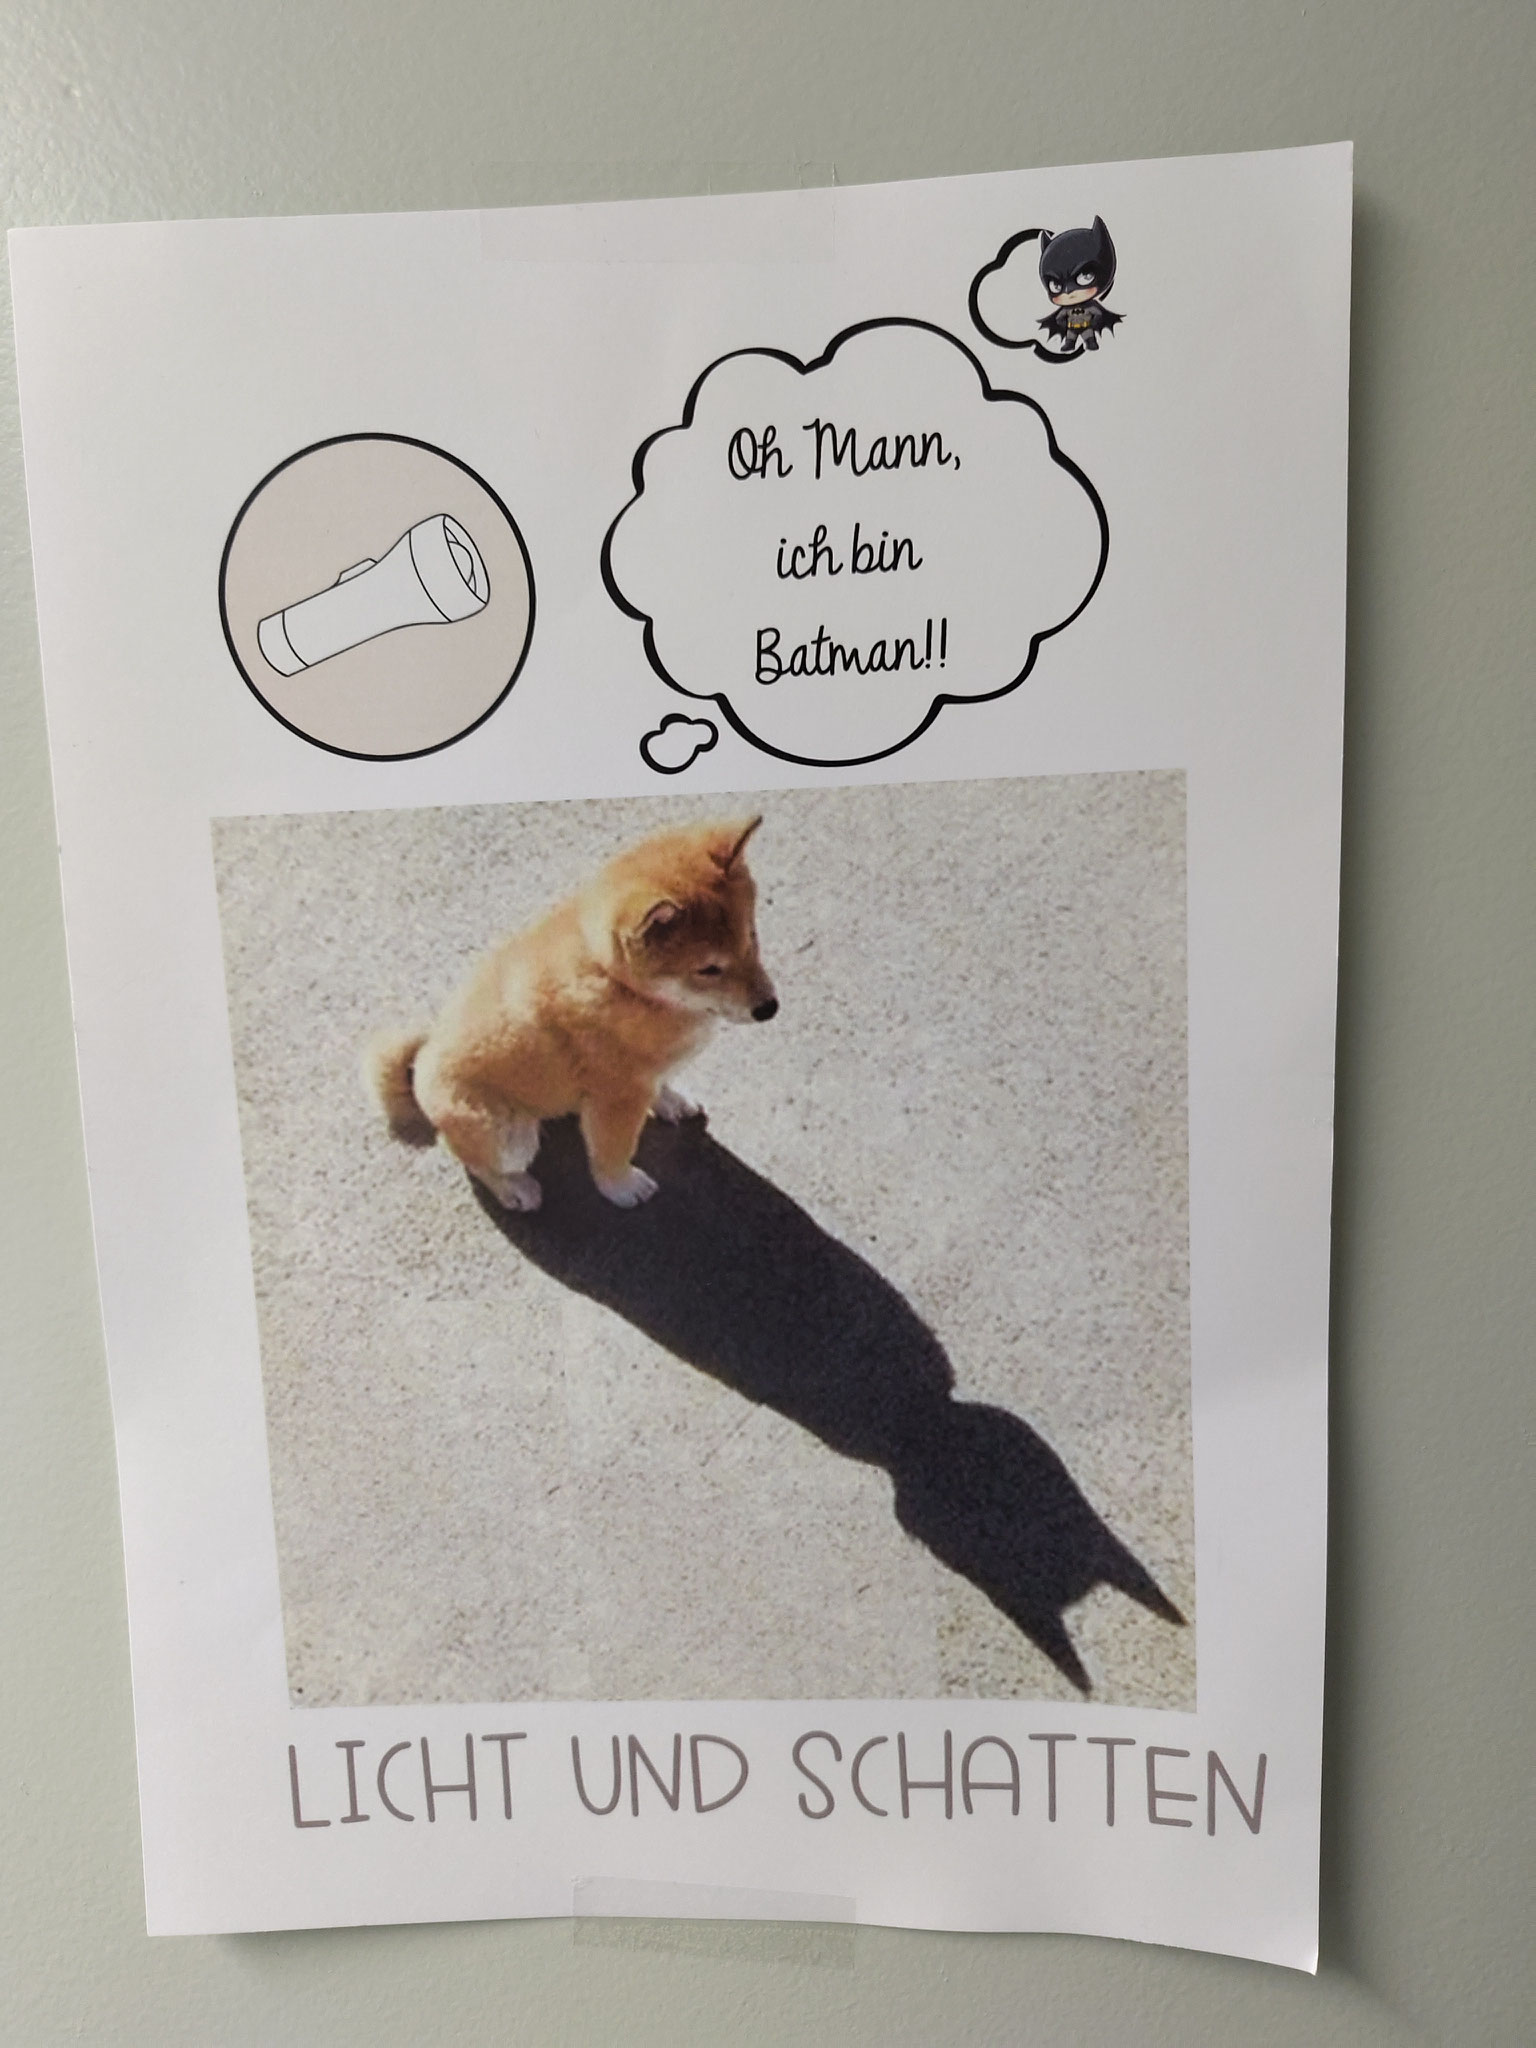 Oh Mann,
ich bin
Batman!!
LICHT UND SCHATTEN